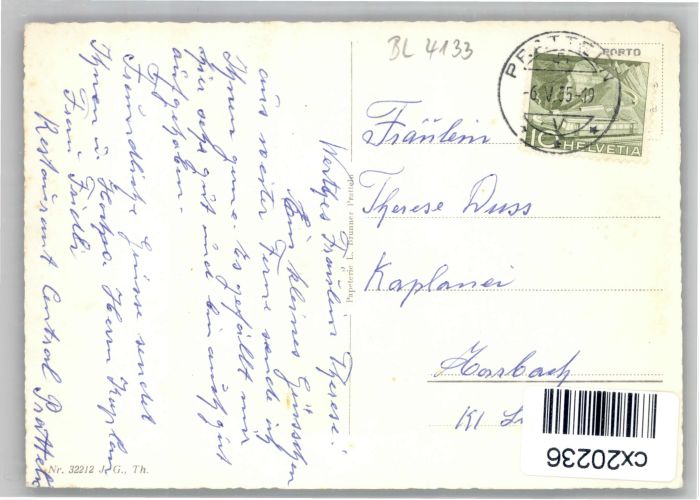 BL 4133
PORTO
PRATTELN
-6.V.55-19
10 HELVETIA
Wertges Fräulein Therese!
Ein kleines Grüsschen
aus weiter Ferne sende ich
Ihnen gerne. Es gefällt mir
hier sehr gut und bin auch gut
aufgehoben.
Freundliche Grüsse sendet
Ihnen u. Herrn Kaplan
Frau Friedli
Restaurant Central Pratteln
Papeterie L. Brunner Pratteln
Fräulein
Therese Duss
Kaplanei
Marbach
Kt
Nr. 32212 J. G., Th.
cx20236